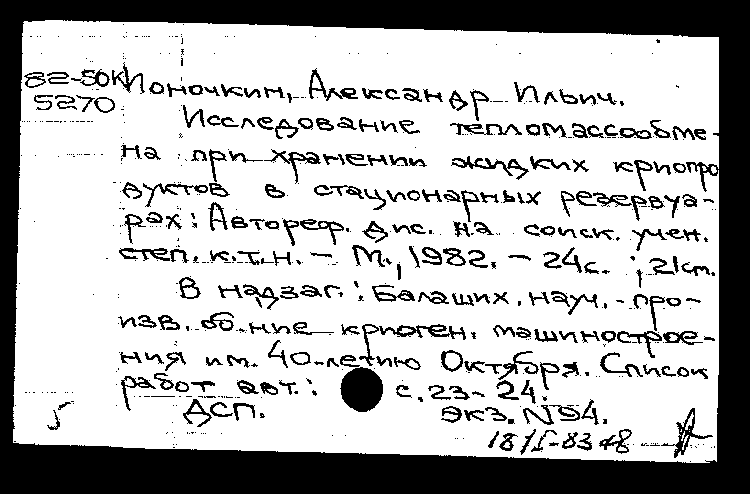 82-50К Ионочкин, Александр Ильич.
5270
Исследование тепломассообме-
на при хранении жидких криопро
дуктов в стационарных резервуа-
рах: Автореф. дис. на соиск. учен.
степ. к.т.н. – М., 1982. – 24с. ; 21см.
В надзаг.: Балаших. науч.-про-
изв. об-ние криоген. машинострое-
ния им. 40-летию Октября. Список
работ авт.: с. 23-24.
5 ДСП. экз. N94.
18/I-83